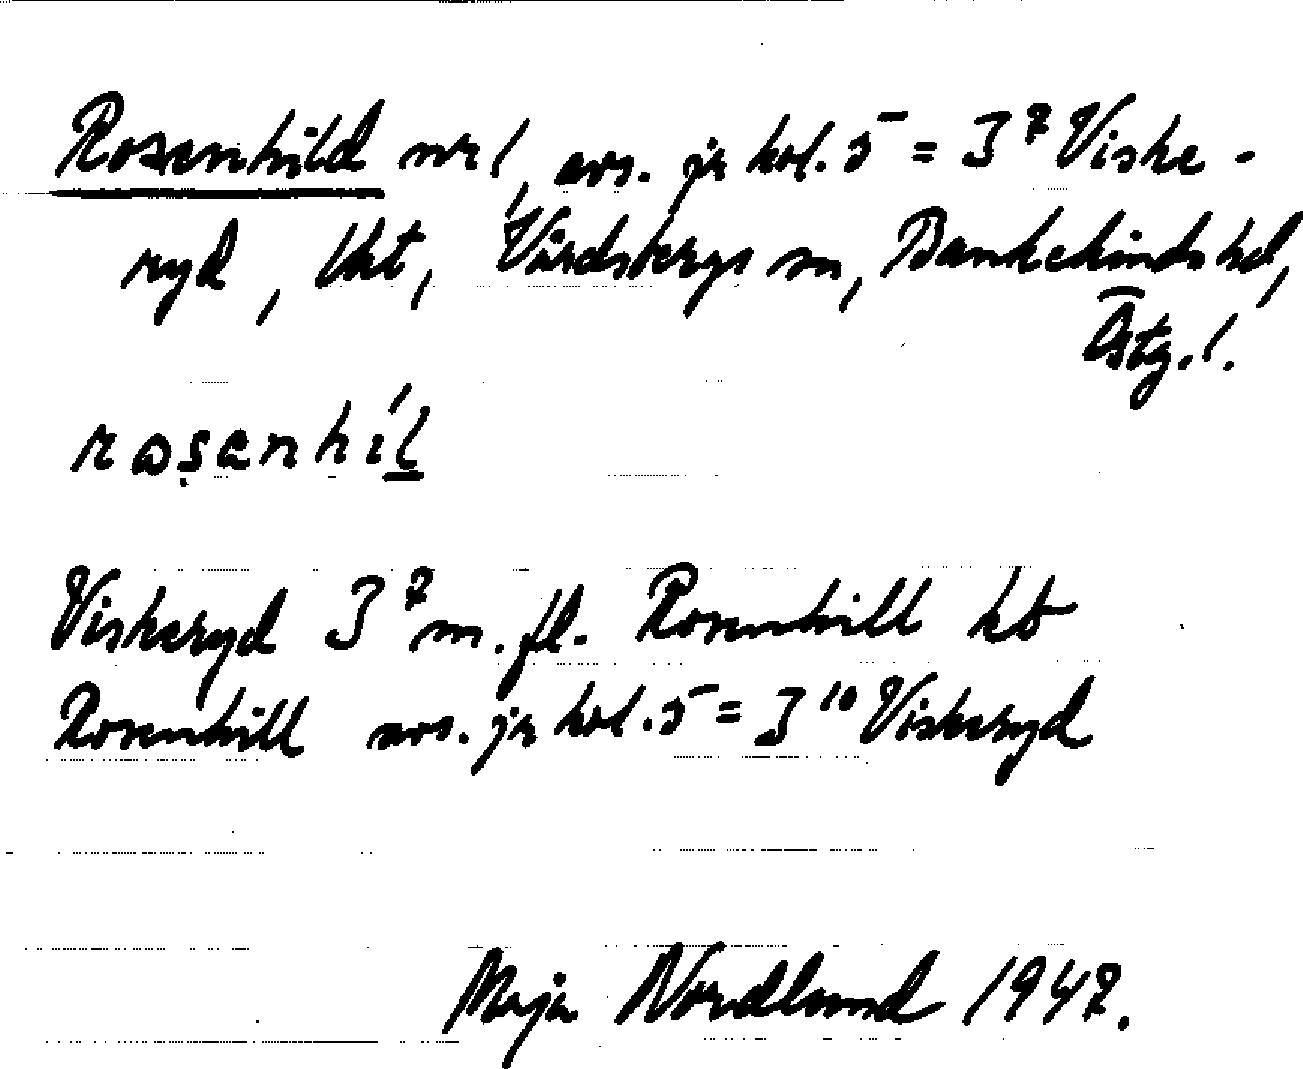 Rosenhild nr 1, avs. jr kol. 5 = 3⁷ Viske-
ryd, Vkt, Vårdsbergs sn, Bankekinds hd,
Östg. l.
rosenhíl
Viskeryd 3⁷ m. fl. Rosenhill kb
Rosenhill avs. jr kol. 5 = 3¹⁰ Viskeryd
Maja Nordlund 1947.